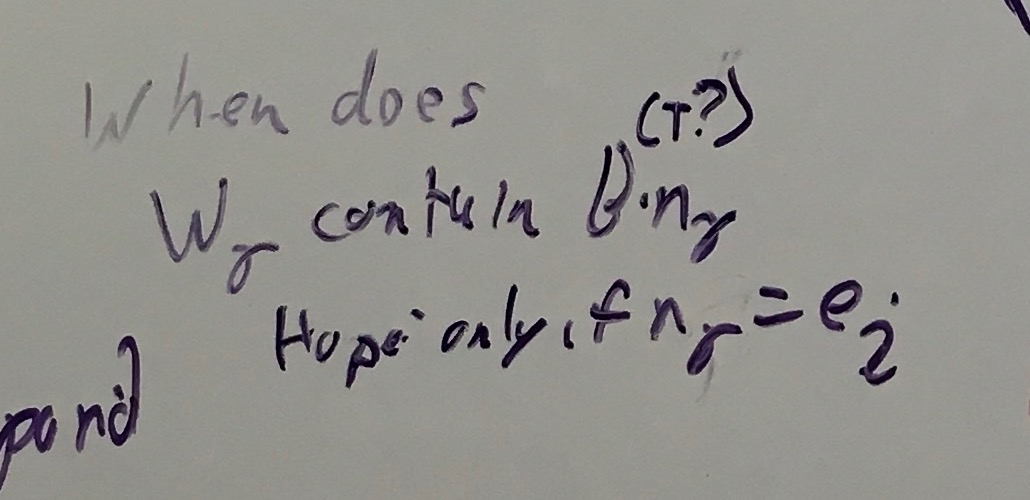 When does
(T?)
W_γ contain B·n_γ
Hope: only if n_γ = e_j